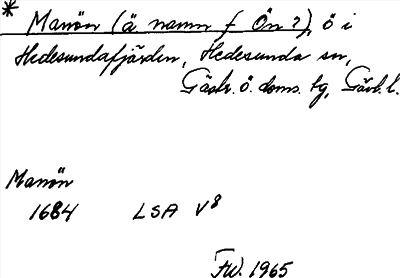 * Manön (ä. namn f. Ön?), ö i
Hedesundafjärden, Hedesunda sn,
Gästr. ö. doms. tg, Gävb. l.
Manön
1684 LSA V8
FW. 1965